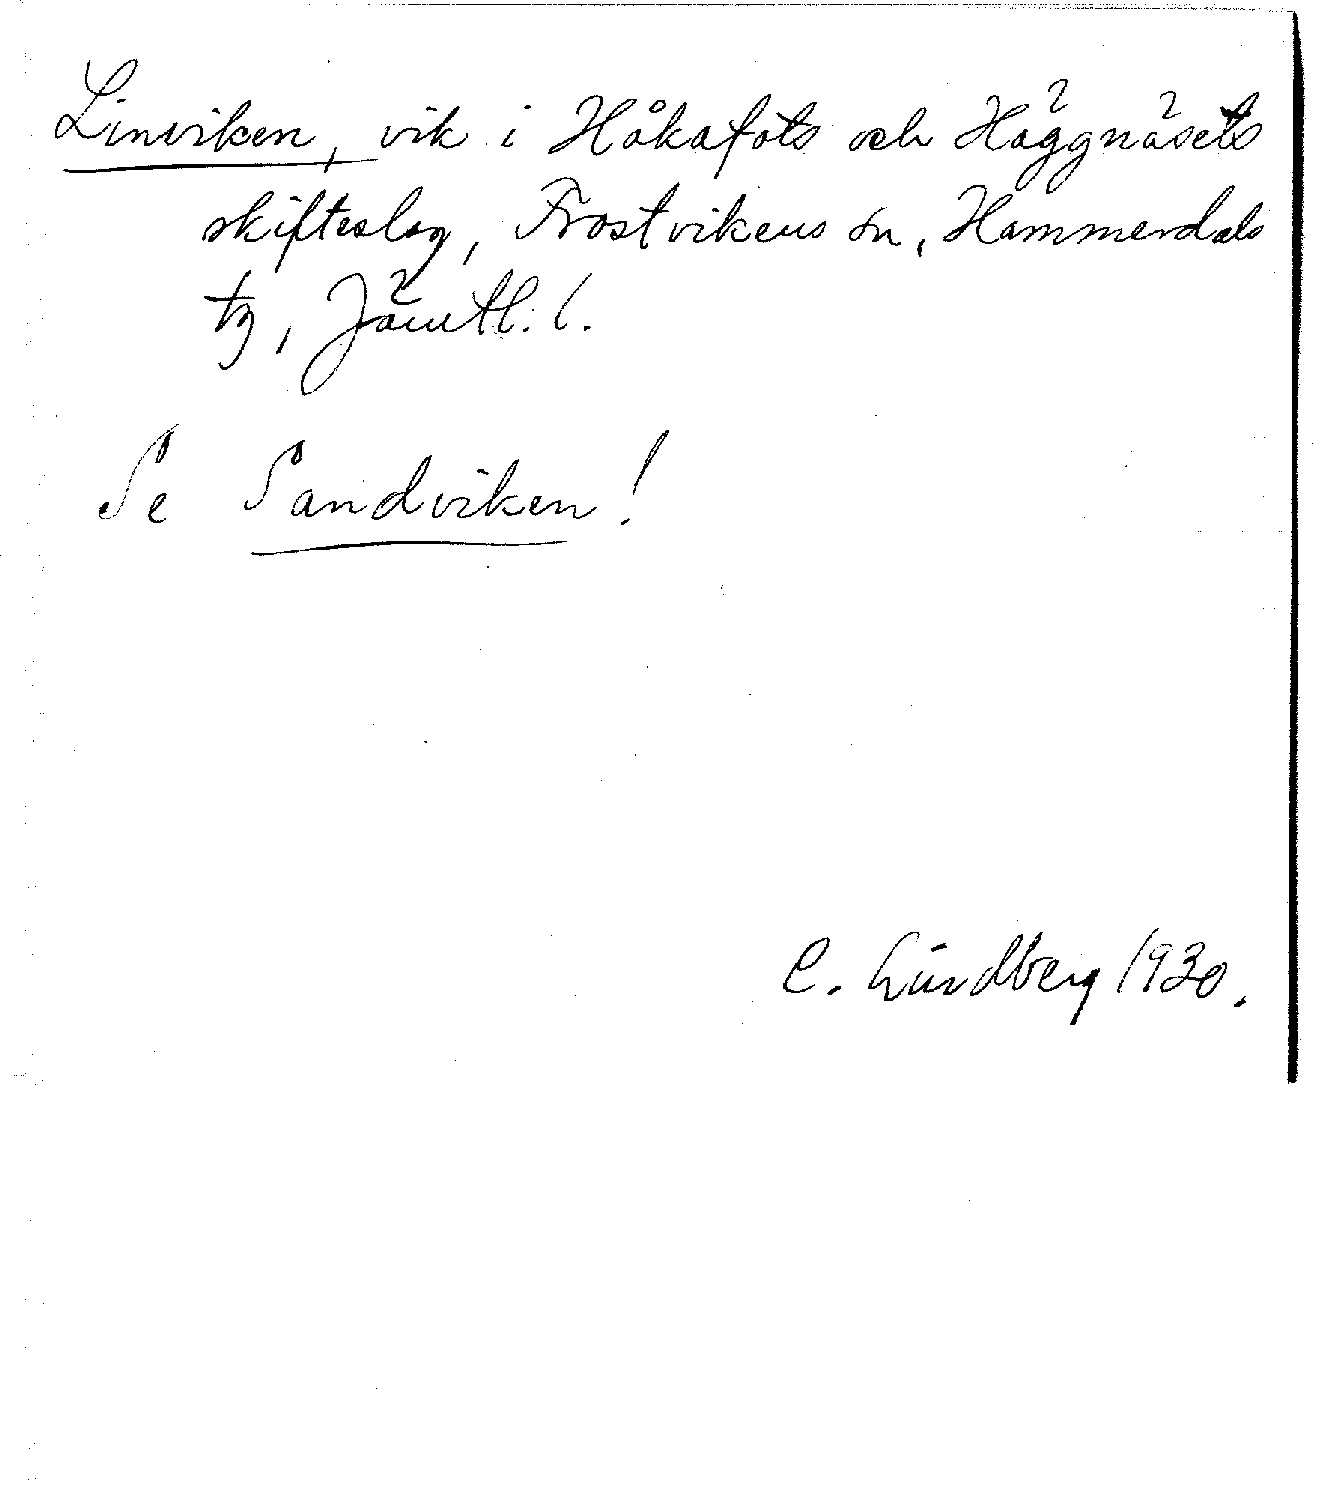 Linviken, vik i Håkafots och Häggnäsets
skifteslag, Frostvikens sn, Hammerdals
tg, Jämtl. l.
Se Sandviken!
C. Lindberg 1930.